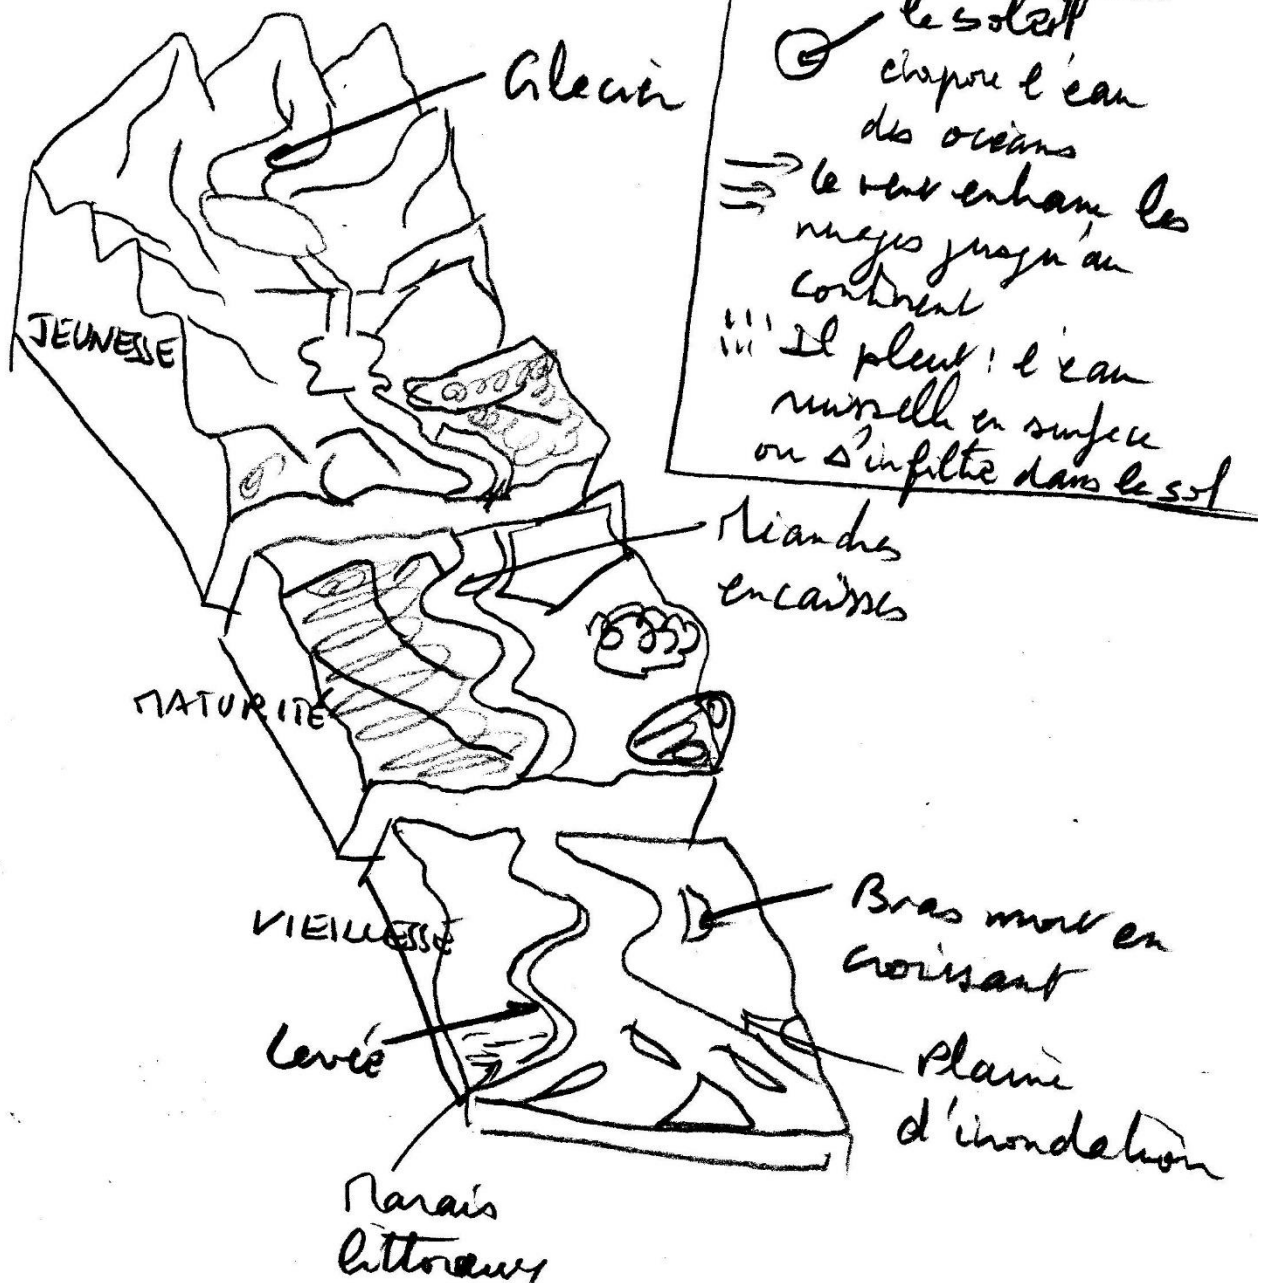 Glacier
le soleil
évapore l'eau
des océans
le vent entraîne les
nuages jusqu'au
continent
Il pleut : l'eau
ruisselle en surface
ou s'infiltre dans le sol
JEUNESSE
Méandres
encaissés
MATURITÉ
VIEILLESSE
Bras mort en
croissant
Levée
Plaine
d'inondation
Marais
littoraux